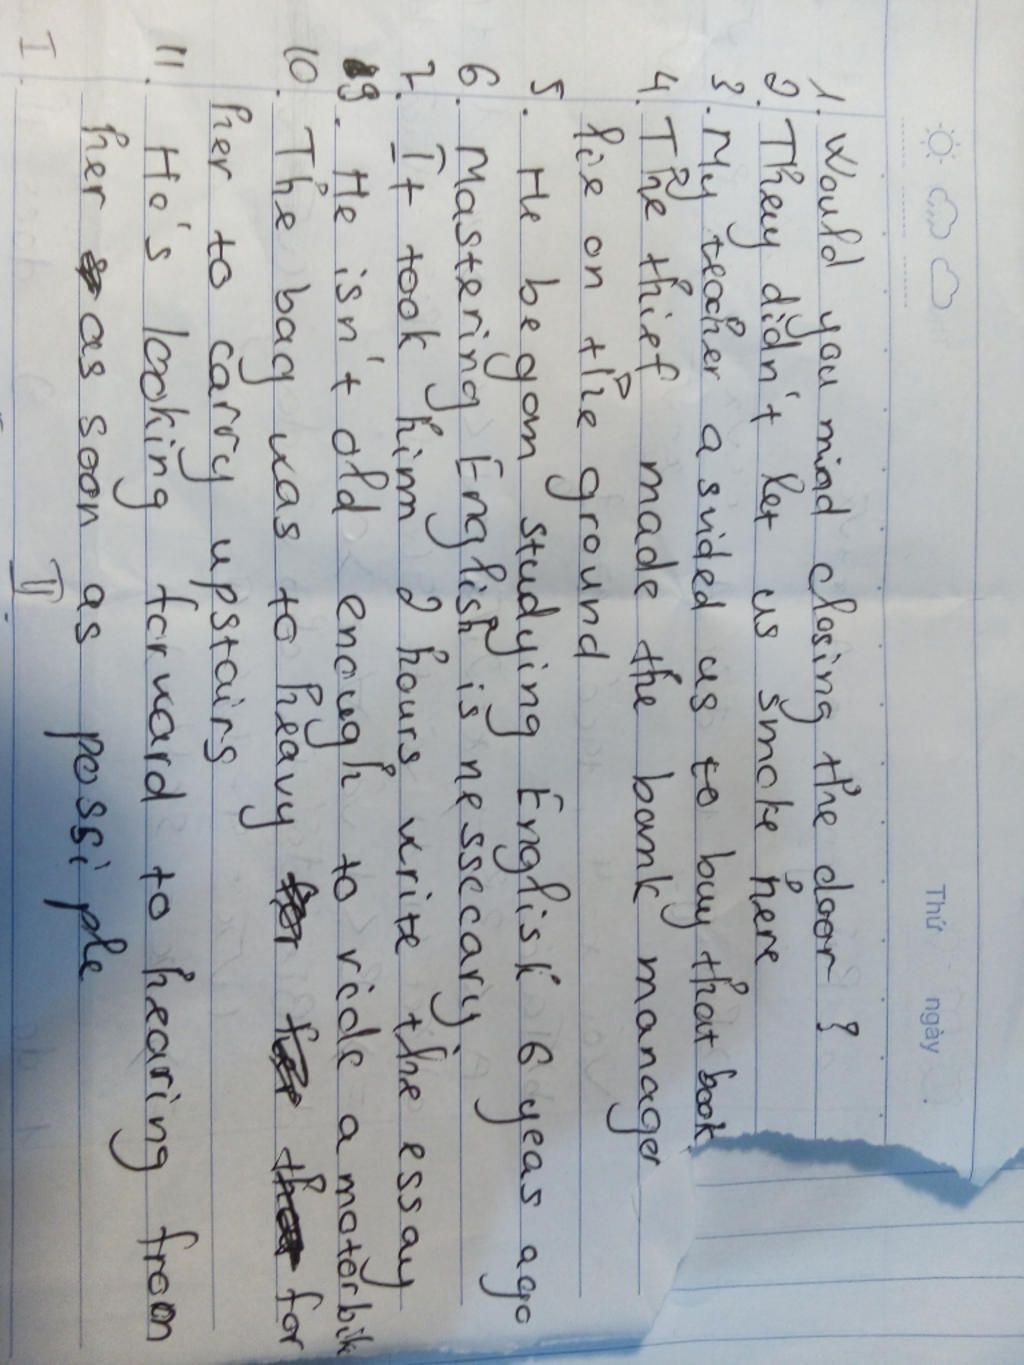 Thứ ngày
1. Would you mind closing the door?
2. They didn't let us smoke here
3. My teacher a svided us to buy that book
4. The thief made the bank manager
lie on the ground
5. He began studying English 6 yeas ago
6. Mastering English is nessecary
7. It took him 2 hours write the essay
9. He isn't old enough to ride a motorbik
10. The bag was to heavy for
her to carry upstairs
11. Ho's looking forward to hearing from
her as soon as possiple
I II